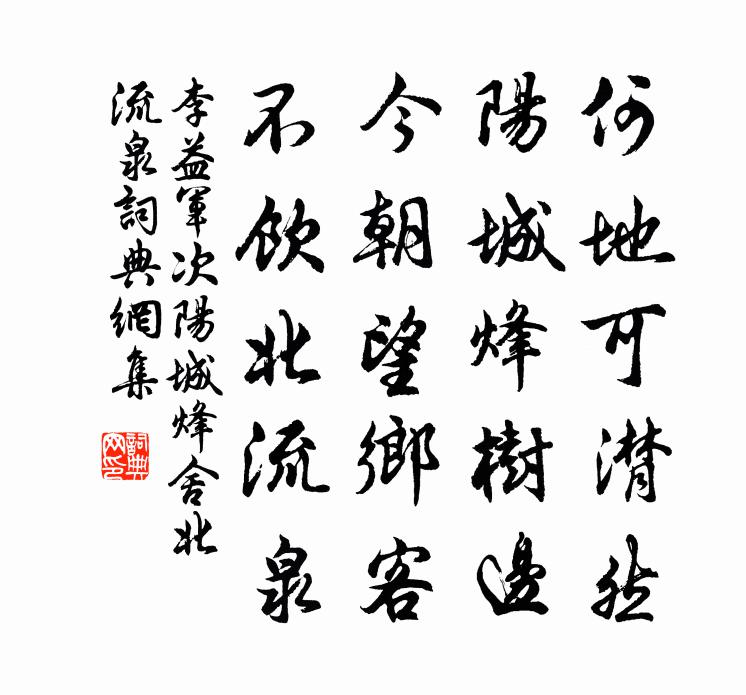 何地可潸然
陽城烽樹邊
今朝望鄉客
不飲北流泉
李益軍次陽城烽舍北
流泉詞典網集
詞典網印